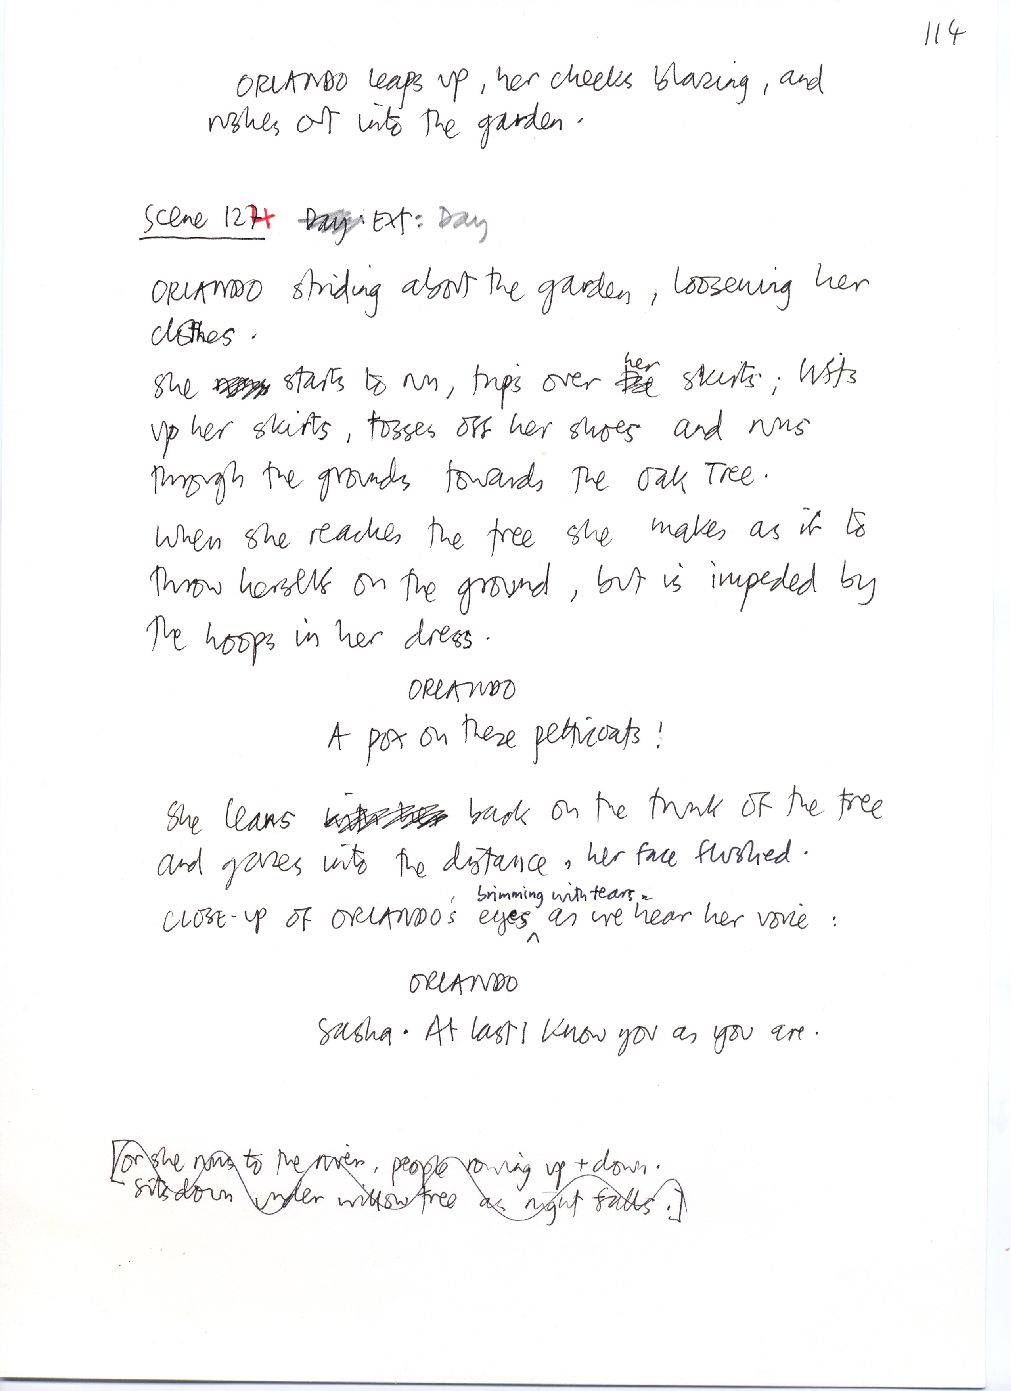 114
ORLANDO leaps up, her cheeks blazing, and
rushes out into the garden.
Scene 124 Day: EXT: Day
ORLANDO striding about the garden, loosening her
clothes.
She starts to run, trips over her skirts; lifts
up her skirts, tosses off her shoes and runs
through the grounds towards the Oak Tree.
When she reaches the tree she makes as if to
throw herself on the ground, but is impeded by
the hoops in her dress.
ORLANDO
A pox on these petticoats!
She leans back on the trunk of the tree
and gazes into the distance, her face flushed.
brimming with tears
CLOSE-UP OF ORLANDO's eyes ^ as we hear her voice:
ORLANDO
Sasha. At last I know you as you are.
[or she runs to the river, people rowing up + down.
sits down under willow tree as night falls.]